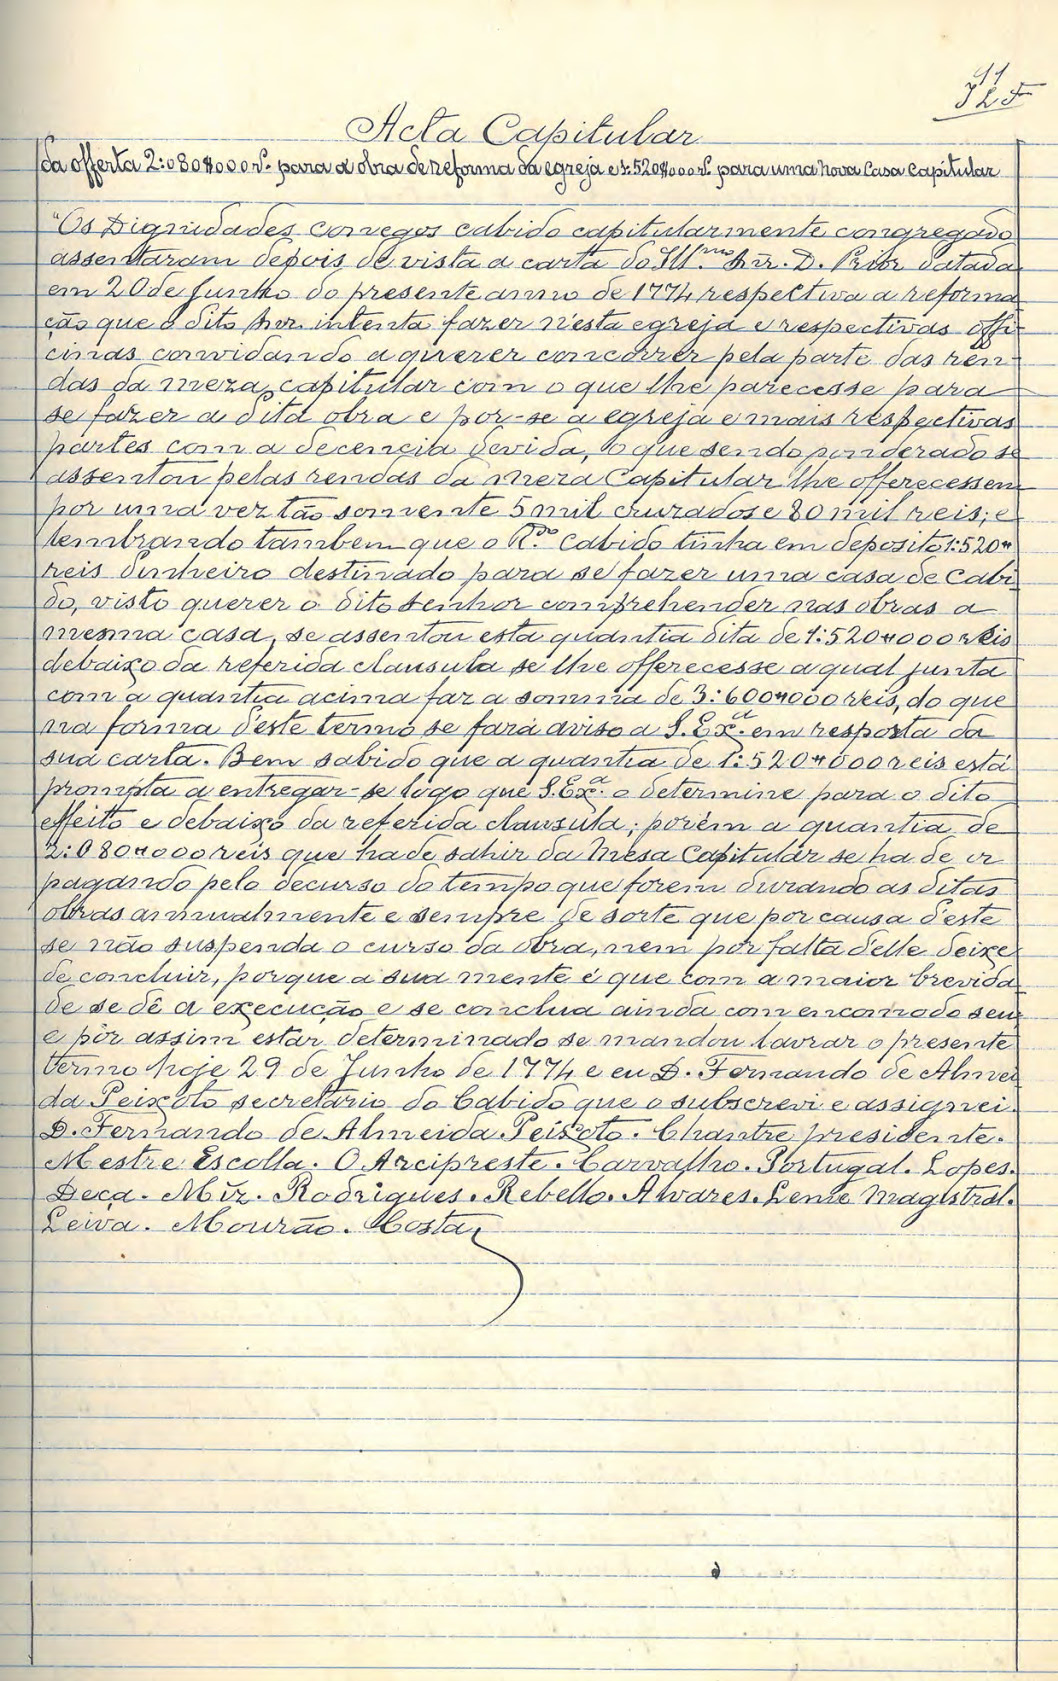 Acta Capitular
da offerta 2:080$000 rs. para a obra de reforma da egreja e 1:520$000 rs. para uma nova Casa Capitular
"Os Dignidades, conegos cabido capitularmente congregado
assentaram depois de vista a carta do Ill.mo Snr. D. Prior datada
em 20 de Junho do presente anno de 1774 respectiva a reforma
ção que o dito Snr. intenta fazer n'esta egreja e respectivas offi-
cinas convidando a querer concorrer pela parte das ren-
das da meza capitular com o que lhe parecesse para
se fazer a dita obra e por-se a egreja e mais respectivas
partes com a decencia devida, o que sendo ponderado se
assentou pelas rendas da meza Capitular lhe offerecessem
por uma vez tão somente 5 mil cruzados e 80 mil reis; e
lembrando tambem que o R.do Cabido tinha em deposito 1:520$
reis dinheiro destinado para se fazer uma casa de Cabi-
do, visto querer o dito senhor comprehender nas obras a
mesma casa, se assentou esta quantia dita de 1:520$000 reis
debaixo da referida clausula se lhe offerecesse a qual junta
com a quantia acima faz a somma de 3:600$000 reis, do que
na forma d'este termo se fará aviso a S. Ex.a em resposta da
sua carta. Bem sabido que a quantia de 1:520$000 reis está
prompta a entregar-se logo que S. Ex.a o determine para o dito
effeito e debaixo da referida clausula; porém a quantia de
2:080$000 reis que hade sahir da Mesa Capitular se ha de ir
pagando pelo decurso do tempo que forem durando as ditas
obras annualmente e sempre de sorte que por causa d'este
se não suspenda o curso da obra, nem por falta d'elle deixe
de concluir, porque a sua mente é que com a maior brevida
de se dê a execução e se conclua ainda com encomodo seu,
e pôr assim estar determinado se mandou lavrar o presente
termo hoje 29 de Junho de 1774 e eu D. Fernando de Almei
da Peixoto secretario do Cabido que o subscrevi e assignei.
D. Fernando de Almeida Peixoto. Chantre presidente.
Mestre Escolla. O Arcipreste. Carvalho. Portugal. Lopes.
Deça. Miz. Rodrigues. Rebello. Alvares. Leme Magistral.
Leiva. Mourão. Costa